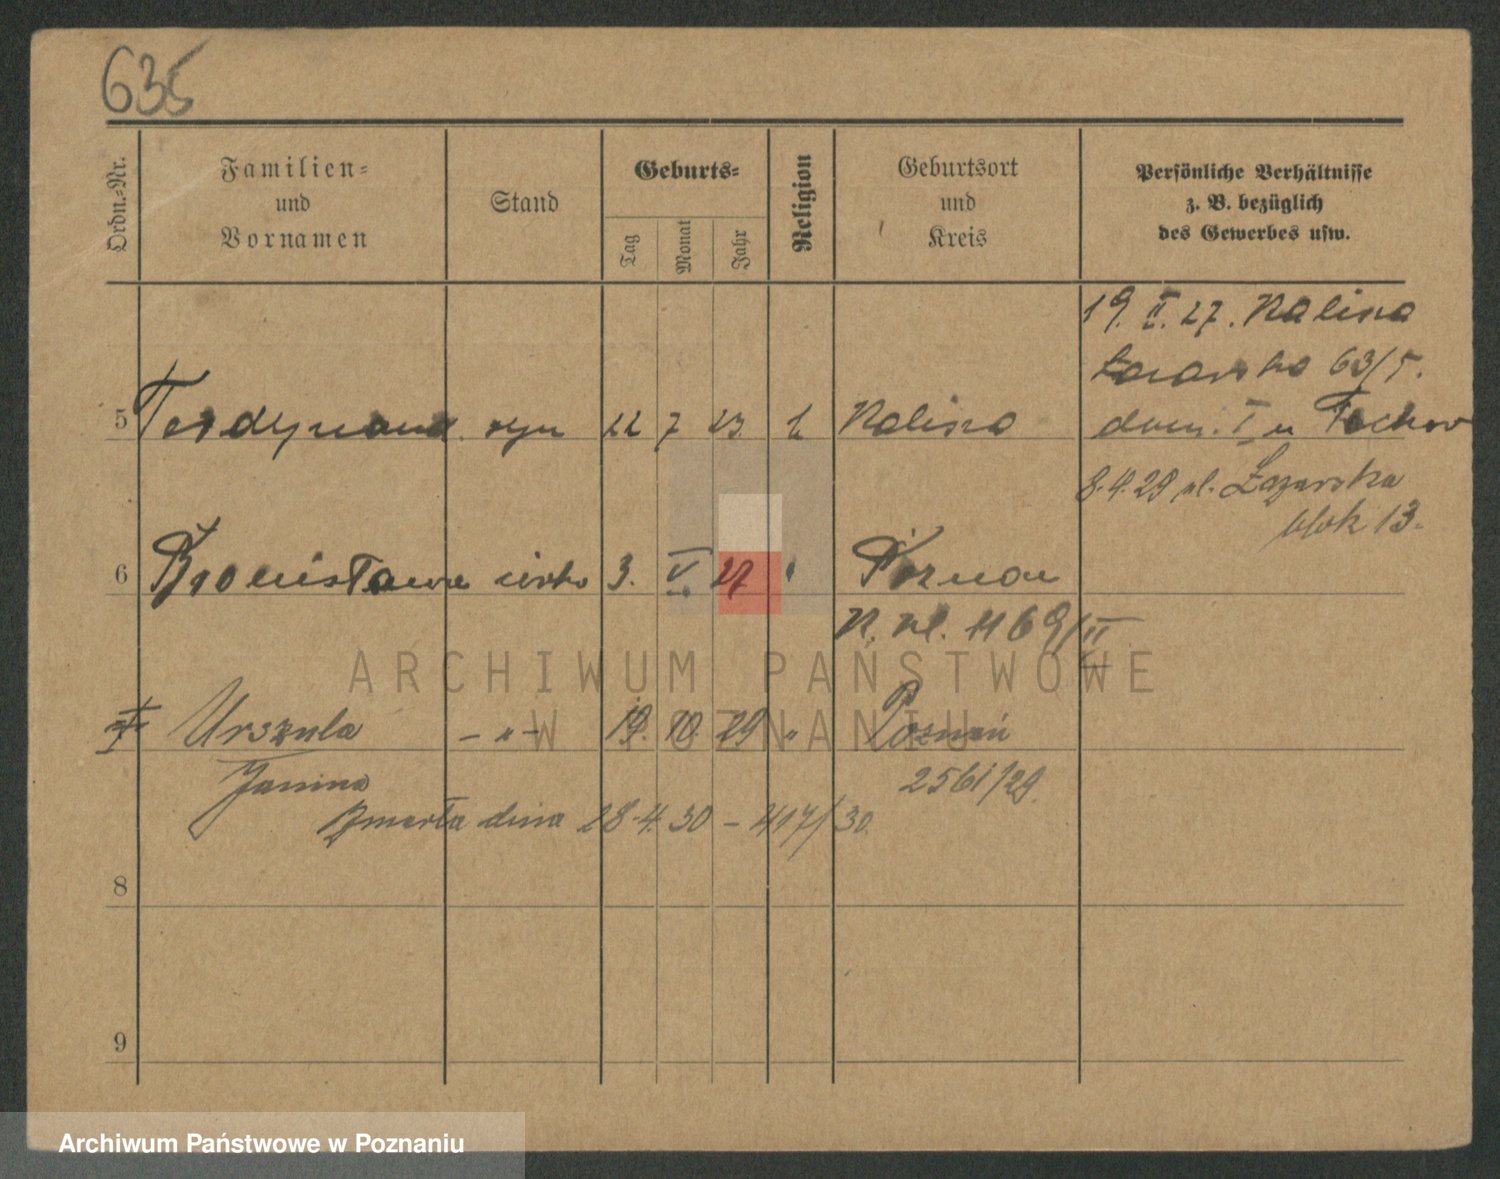 635
Ordn.-Nr.
Familien-
und
Vornamen
Stand
Geburts-
Tag
Monat
Jahr
Religion
Geburtsort
und
Kreis
Persönliche Verhältnisse
z. B. bezüglich
des Gewerbes usw.
19. II. 27. Kalisza
63/5.
5 Ferdynand syn 22 7 23 Kalisza
dom. I u
8.4.29 ul. Łazarska
blok 13.
6 Bronisława 3. V 27 Poznań
1169/II
Urszula – " – 19. 10. 29 " Poznań
Janina 2561/29.
Zmarła dnia 28.4.30 – 417/30.
8
9
ARCHIWUM PAŃSTWOWE
W POZNANIU
Archiwum Państwowe w Poznaniu